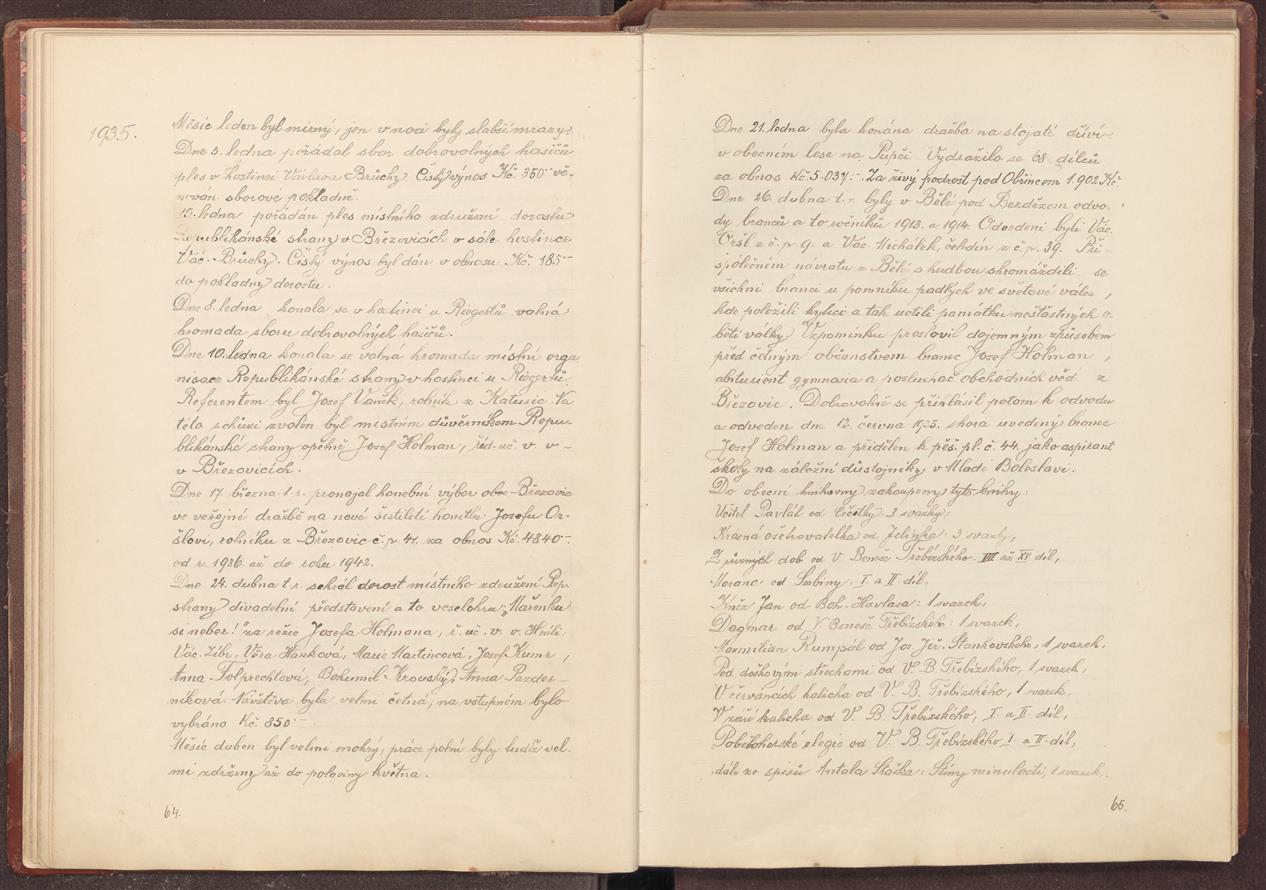 1935.
Měsíc leden byl mírný, jen v noci byly slabší mrazy.
Dne 5. ledna pořádal sbor dobrovolných hasičů
ples v hostinci Václava Brůchy. Čistý výnos Kč 350·- vě-
nován sborové pokladně.
15. ledna pořádán ples místního združení dorostu
Republikánské strany v Březovicích v sále hostince
Vác. Brůchy. Čistý výnos byl dán v obnosu Kč 185·-
do pokladny dorostu.
Dne 8. ledna konala se v hostinci u Riegertů valná
hromada sboru dobrovolných hasičů.
Dne 10. ledna konala se valná hromada místní orga
nisace Republikánské strany v hostinci u Riegertů.
Referentem byl Josef Vaněk, rolník z Katusic. Na
této schůzi zvolen byl místním důvěrníkem Repu
blikánské strany opětně Josef Holman, říd. uč. v. v.
v Březovicích.
Dne 17. března t. r. pronajal honební výbor obce Březovic
ve veřejné dražbě na nové šestiletí honitbu Josefu Or-
šlovi, rolníku z Březovic č. p. 41. za obnos Kč 4840·-
od r. 1936 až do roku 1942.
Dne 24. dubna t. r. sehrál dorost místního združení Rep.
strany divadelní představení a to veselohru „Mařenku
si neber!" za režie Josefa Holmana, ř. uč. v. v. Hráli:
Vác. Zibr, Věra Hanková, Marie Martincová, Josef Kunc,
Anna Folprechtova, Bohumil Krouský, Anna Pazder-
níková. Návštěva byla velmi četná, na vstupném bylo
vybráno Kč 850·-
Měsíc duben byl velmi mokrý, práce polní byly tudíž vel-
mi zdrženy až do poloviny května.
64.
Dne 21. ledna byla konána dražba na stojaté dříví
v obecním lese na Pupči. Vydražilo se 68 dílců
za obnos Kč 5.037·- Za živý podrost pod Obřincem 1.902 Kč.
Dne 26. dubna t. r. byly v Bělé pod Bezdězem odvo-
dy branců a to ročníků 1913. a 1914. Odvedeni byli Vác.
Oršl z č. p. 9. a Vác. Michálek, čehdín z č. p. 39. Při
společném návratu z Bělé s hudbou shromáždili se
všichni branci u pomníku padlých ve světové válce,
kde položili kytice a tak uctili památku nešťastných o-
bětí války. Vzpomínku proslovil dojemným způsobem
před četným občanstvem branec Josef Holman,
abiturient gymnasia a posluchač obchodních věd z
Březovic. Dobrovolně se přihlásil potom k odvodu
a odveden dne 12. června 1935. shora uvedený branec
Josef Holman a přidělen k pěš. pl. č. 44. jako aspirant
školy na záložní důstojníky v Mladé Boleslavi.
Do obecní knihovny zakoupeny tyto knihy:
Učitel Pavlál od Čečetky 3 svazky,
Krásná ošetřovatelka od Jelínka: 3 svazky,
Z různých dob od V. Beneš Třebízského VIII až XV díl,
Morana od Sabiny I. a II. díl.
Kněz Jan od Boh. Havlasa: 1 svazek,
Dagmar od V. Beneše Třebízského: 1 svazek,
Maxmilian Rumpál od Jos. Jiř. Stankovského, 1 svazek.
Pod doškovými střechami od V. B. Třebízského, 1 svazek,
V červáncích kalicha od V. B. Třebízského, 1 svazek,
V záři kalicha od V. B. Třebízského, I. a II. díl,
Pobělohorské elegie od V. B. Třebízského I. a II. díl,
dále ze spisů Antala Staška: Stíny minulosti, 1 svazek,
65.